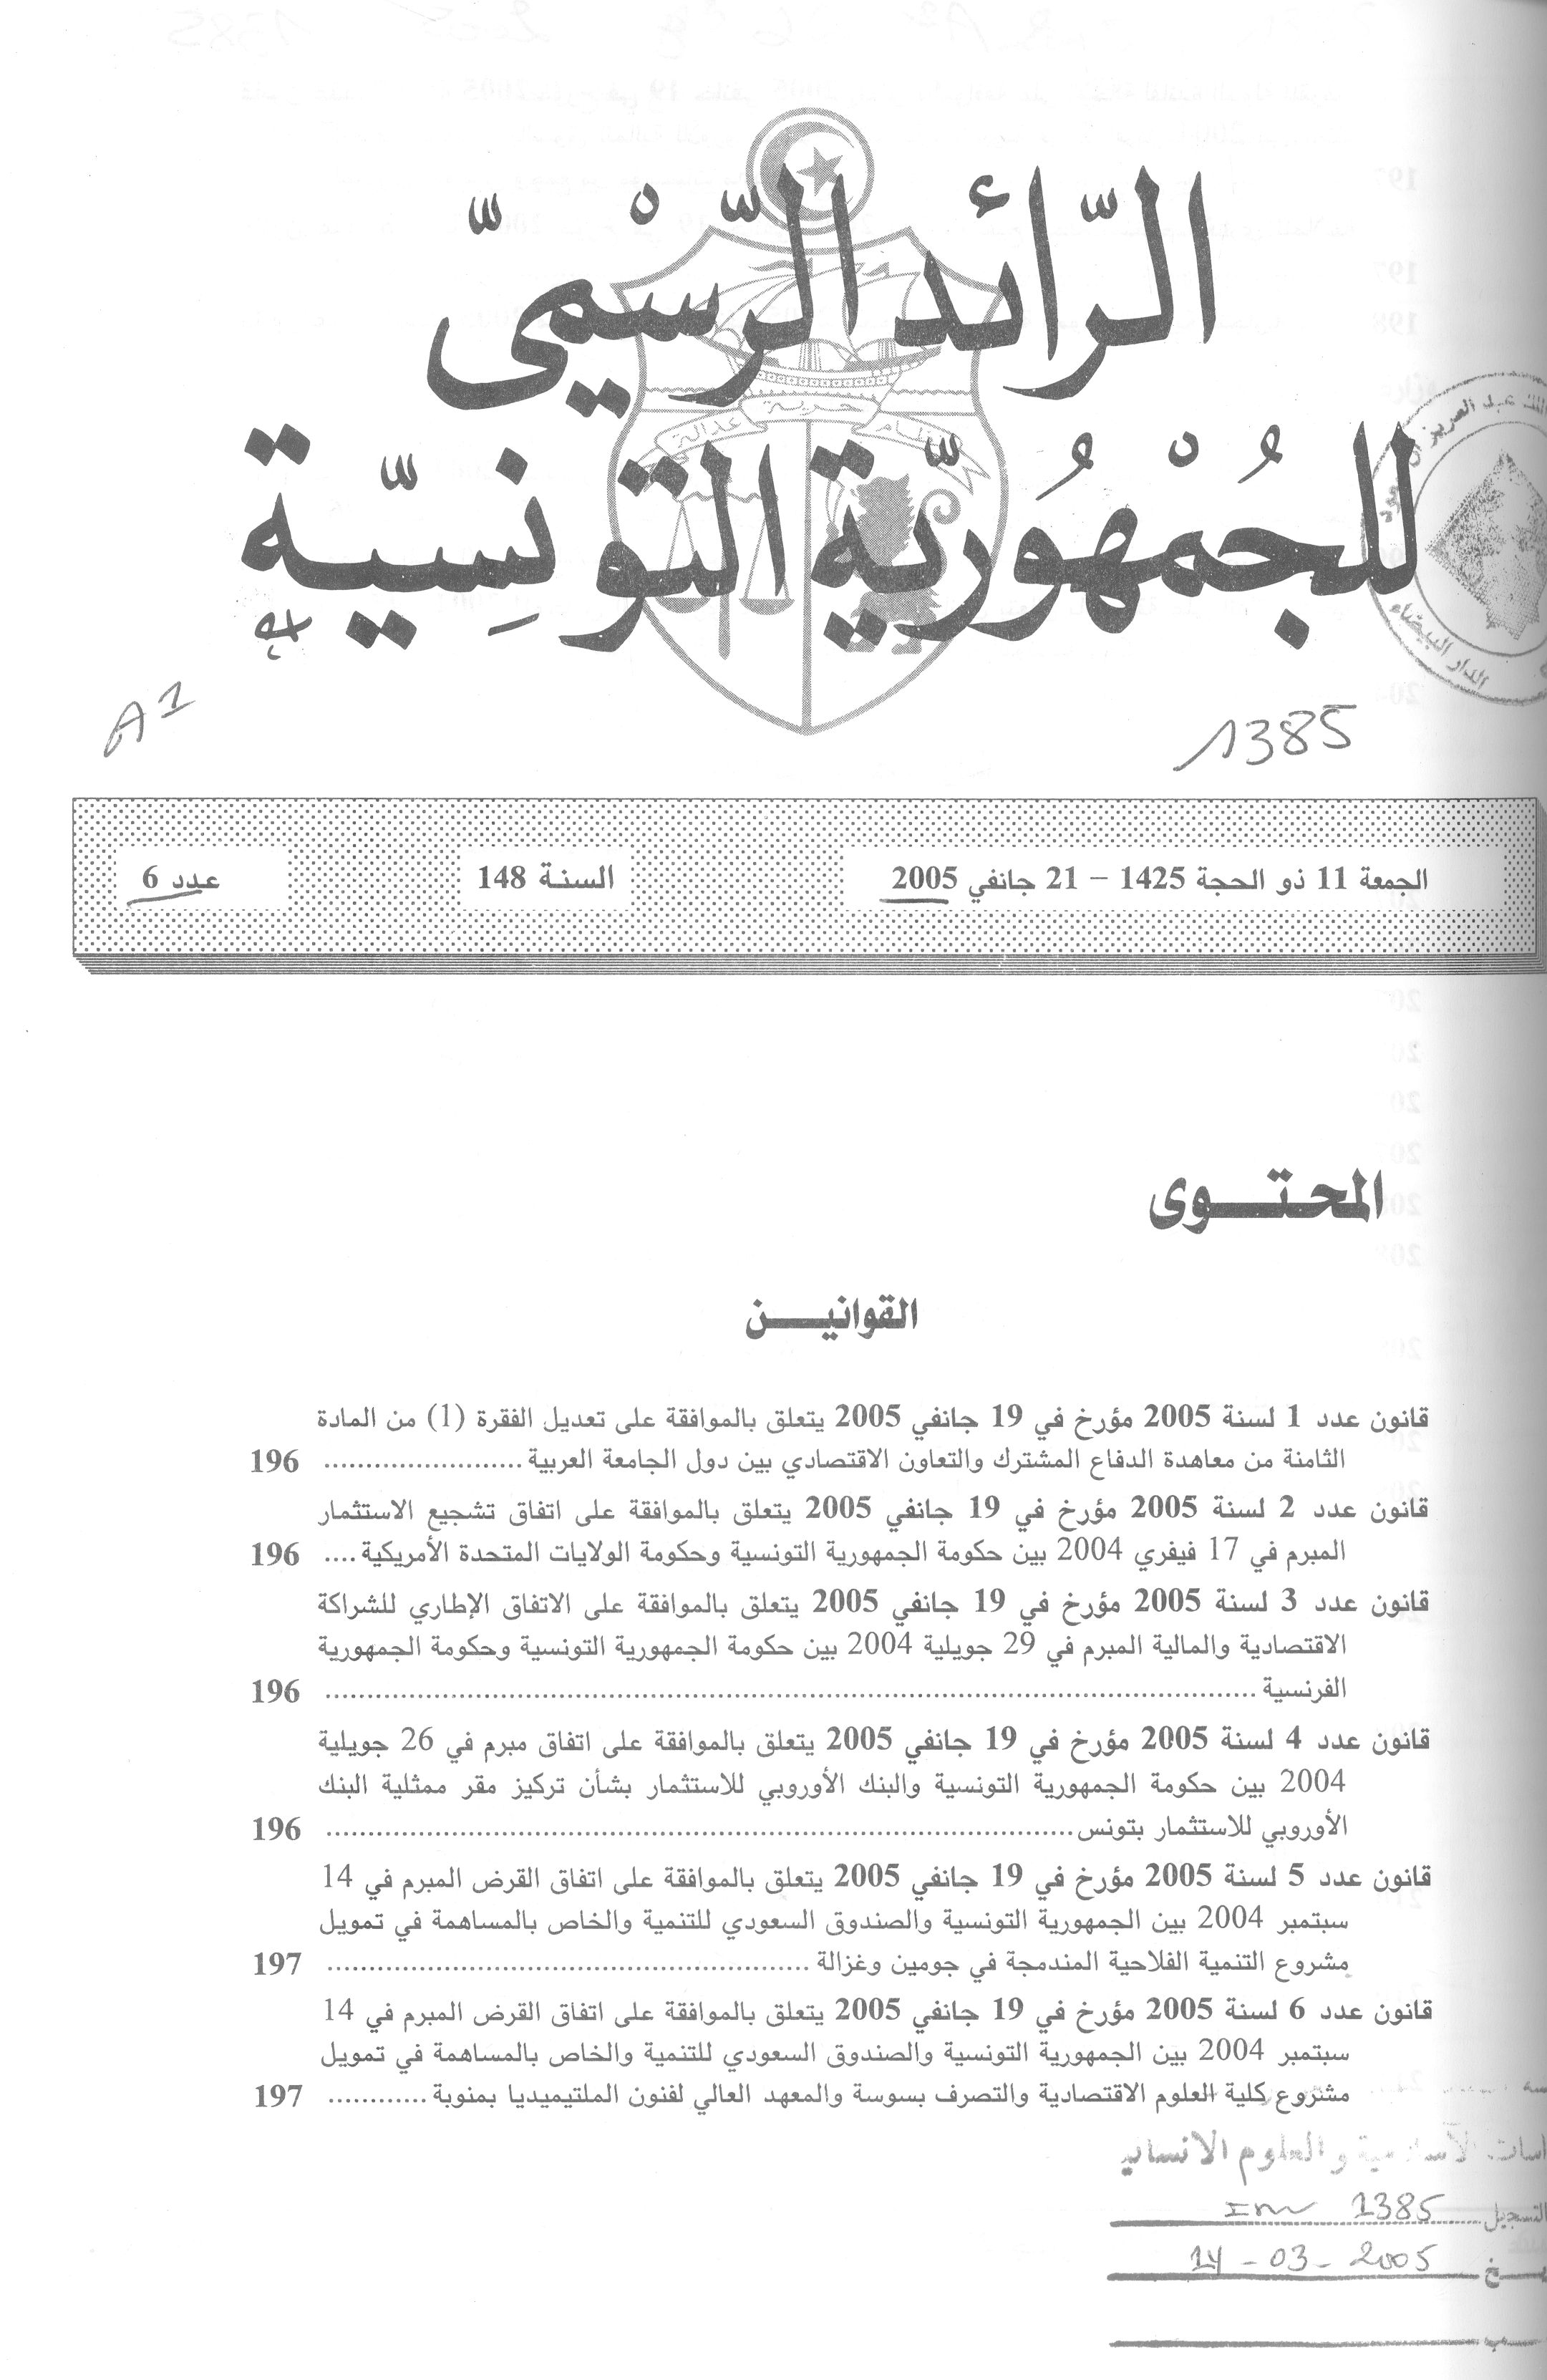 الرّائد الرّسْميّ
للجُمْهُوريّة التونِسيّة
نظام حرية عدالة
عبد العزيز
الدار البيضاء
A1
1385
الجمعة 11 ذو الحجة 1425 – 21 جانفي 2005 السنة 148 عدد 6
المحتوى
القوانين
قانون عدد 1 لسنة 2005 مؤرخ في 19 جانفي 2005 يتعلق بالموافقة على تعديل الفقرة (1) من المادة
الثامنة من معاهدة الدفاع المشترك والتعاون الاقتصادي بين دول الجامعة العربية ........................ 196
قانون عدد 2 لسنة 2005 مؤرخ في 19 جانفي 2005 يتعلق بالموافقة على اتفاق تشجيع الاستثمار
المبرم في 17 فيفري 2004 بين حكومة الجمهورية التونسية وحكومة الولايات المتحدة الأمريكية .... 196
قانون عدد 3 لسنة 2005 مؤرخ في 19 جانفي 2005 يتعلق بالموافقة على الاتفاق الإطاري للشراكة
الاقتصادية والمالية المبرم في 29 جويلية 2004 بين حكومة الجمهورية التونسية وحكومة الجمهورية
الفرنسية ........................ 196
قانون عدد 4 لسنة 2005 مؤرخ في 19 جانفي 2005 يتعلق بالموافقة على اتفاق مبرم في 26 جويلية
2004 بين حكومة الجمهورية التونسية والبنك الأوروبي للاستثمار بشأن تركيز مقر ممثلية البنك
الأوروبي للاستثمار بتونس ........................ 196
قانون عدد 5 لسنة 2005 مؤرخ في 19 جانفي 2005 يتعلق بالموافقة على اتفاق القرض المبرم في 14
سبتمبر 2004 بين الجمهورية التونسية والصندوق السعودي للتنمية والخاص بالمساهمة في تمويل
مشروع التنمية الفلاحية المندمجة في جومين وغزالة ........................ 197
قانون عدد 6 لسنة 2005 مؤرخ في 19 جانفي 2005 يتعلق بالموافقة على اتفاق القرض المبرم في 14
سبتمبر 2004 بين الجمهورية التونسية والصندوق السعودي للتنمية والخاص بالمساهمة في تمويل
مشروع كلية العلوم الاقتصادية والتصرف بسوسة والمعهد العالي لفنون الملتيميديا بمنوبة ............ 197
والعلوم الانسانية
التسجيل Inv 1385
14 - 03 - 2005